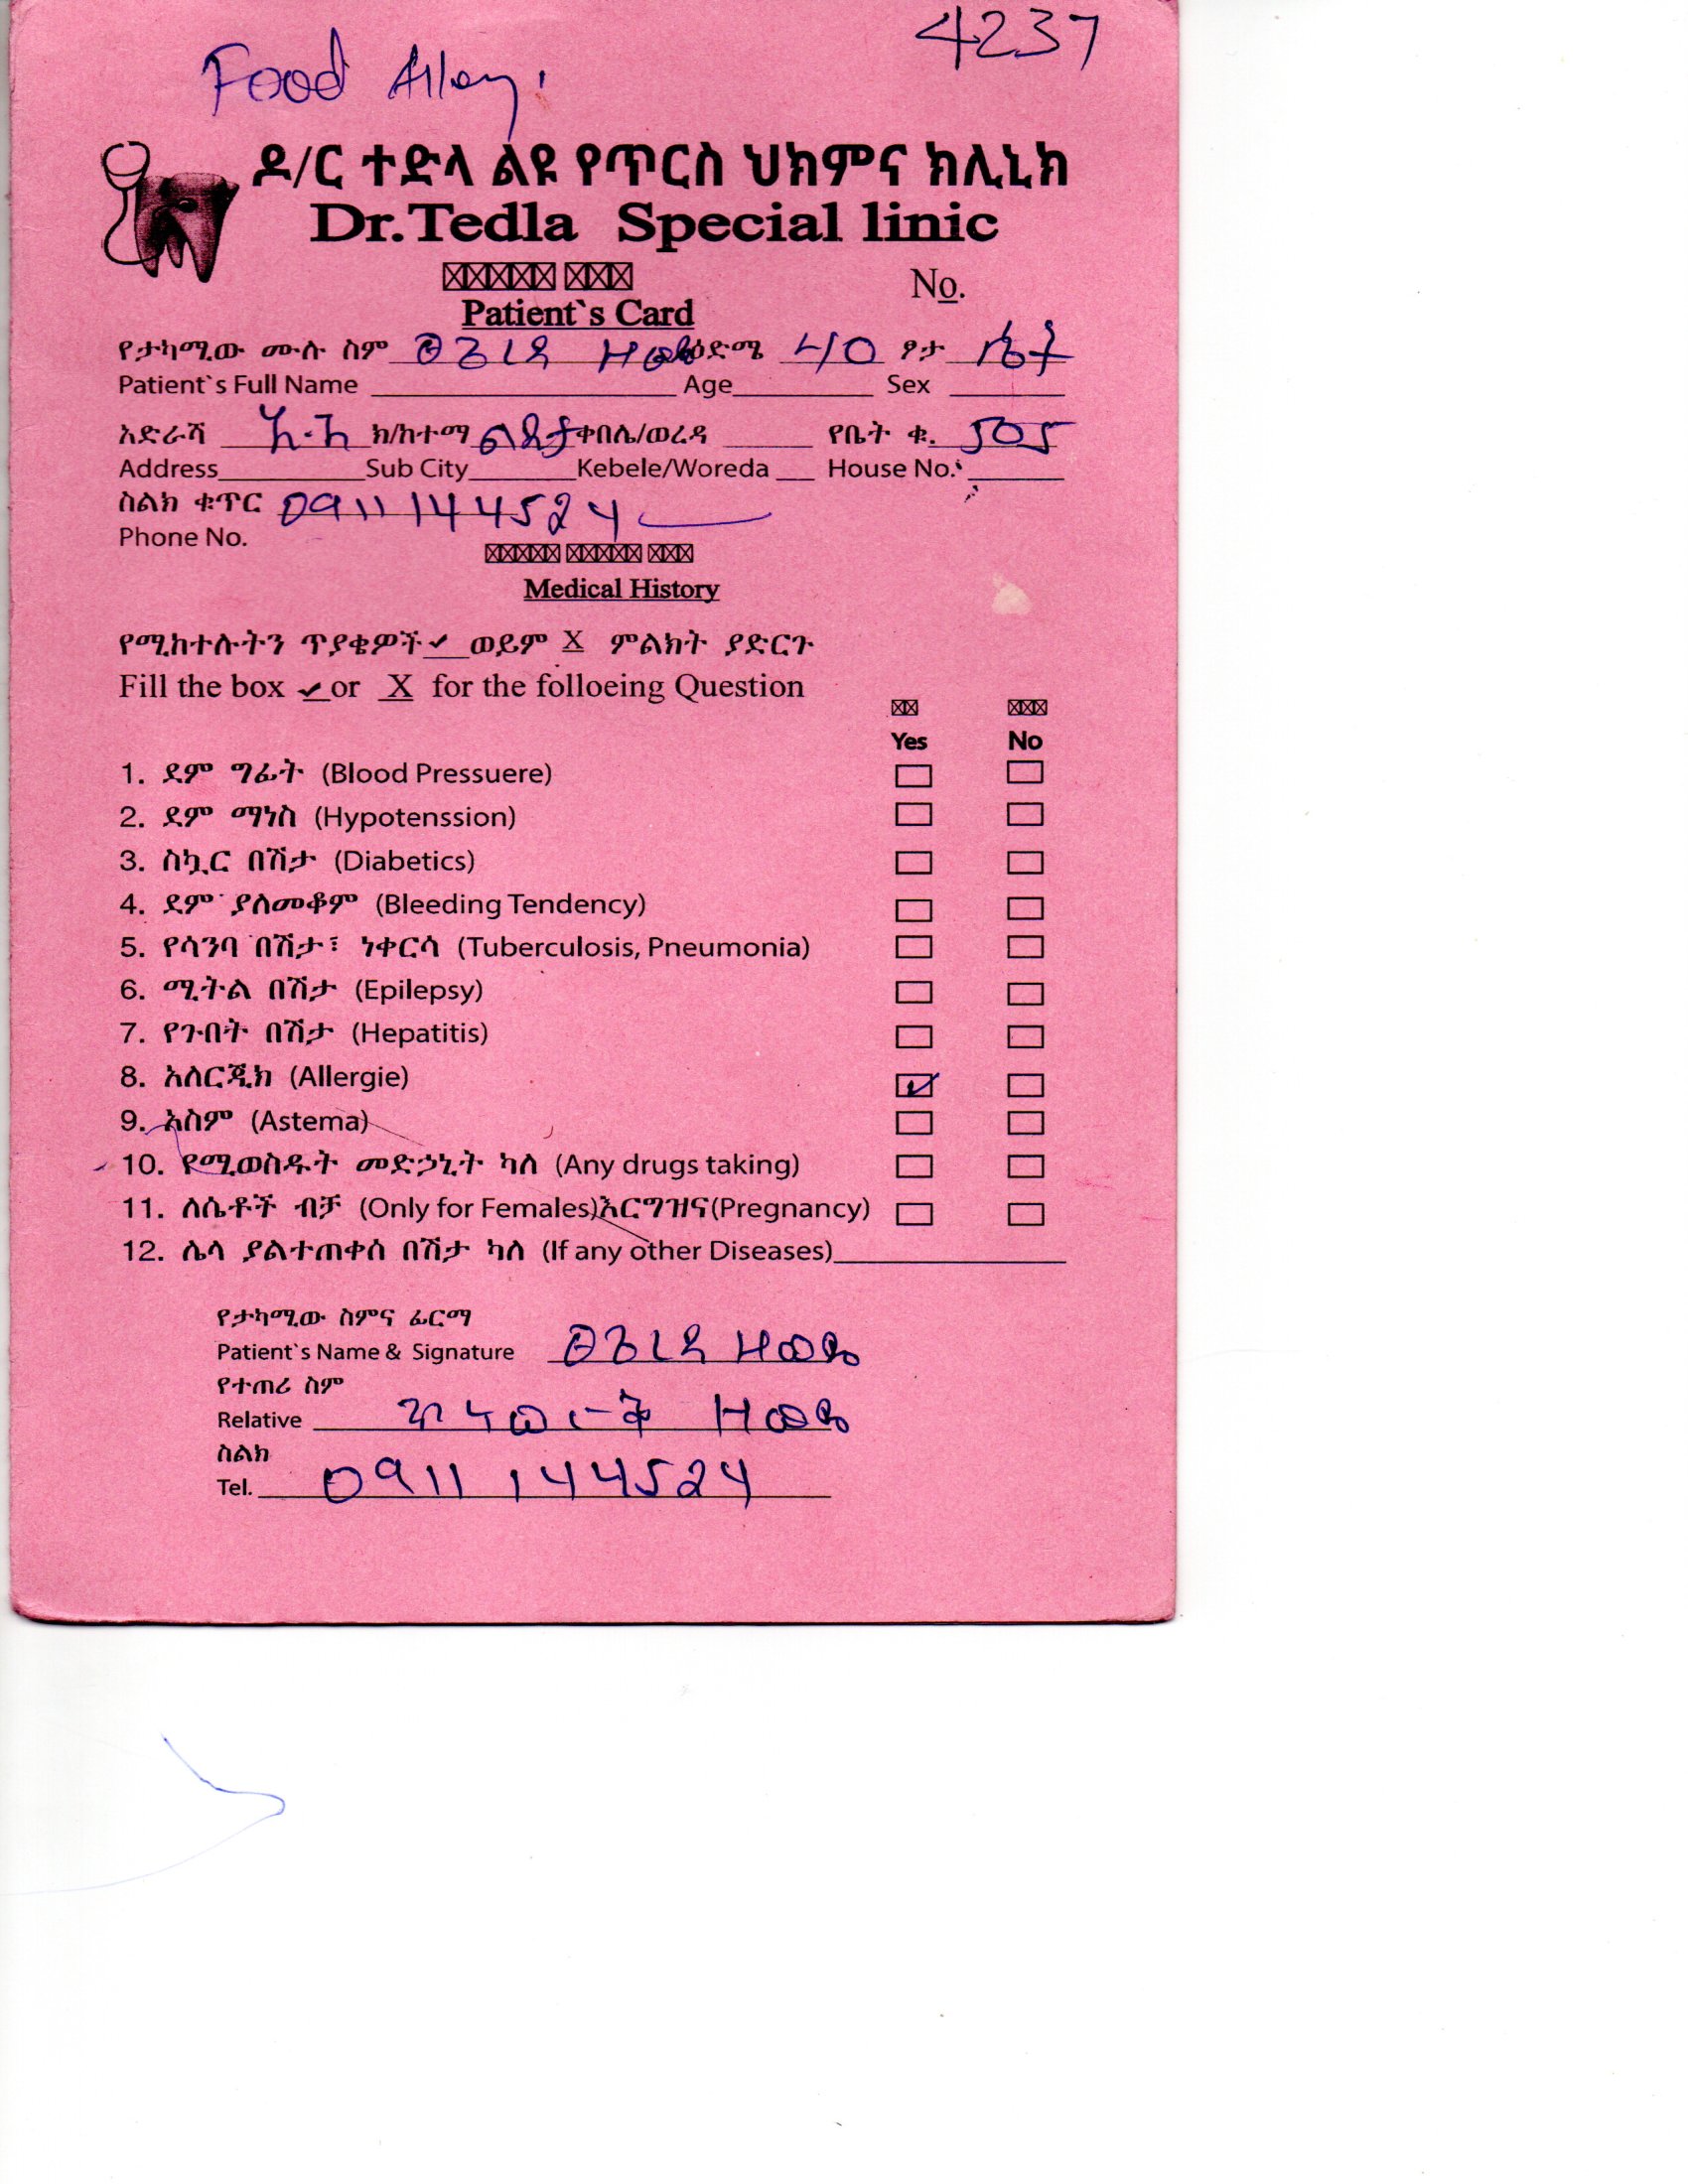 4237
Food
ዶ/ር ተድላ ልዩ የጥርስ ህክምና ክሊኒክ
Dr.Tedla Special linic
No.
Patient`s Card
የታካሚው ሙሉ ስም ዕድሜ 40 ፆታ ሴት
Patient`s Full Name Age Sex
አድራሻ አ.አ ክ/ከተማ ልደታ ቀበሌ/ወረዳ የቤት ቁ. 505
Address Sub City Kebele/Woreda House No.
ስልክ ቁጥር 0911144524
Phone No.
Medical History
የሚከተሉትን ጥያቄዎች ✓ ወይም X ምልክት ያድርጉ
Fill the box ✓ or X for the folloeing Question
Yes No
1. ደም ግፊት (Blood Pressuere)
2. ደም ማነስ (Hypotenssion)
3. ስኳር በሽታ (Diabetics)
4. ደም ያለመቆም (Bleeding Tendency)
5. የሳንባ በሽታ፣ ነቀርሳ (Tuberculosis, Pneumonia)
6. ሚትል በሽታ (Epilepsy)
7. የጉበት በሽታ (Hepatitis)
8. አለርጂክ (Allergie) ✓
9. አስም (Astema)
10. የሚወስዱት መድኃኒት ካለ (Any drugs taking)
11. ለሴቶች ብቻ (Only for Females)እርግዝና(Pregnancy)
12. ሌላ ያልተጠቀሰ በሽታ ካለ (If any other Diseases)
የታካሚው ስምና ፊርማ
Patient`s Name & Signature
የተጠሪ ስም
Relative
ስልክ
Tel. 0911 144524